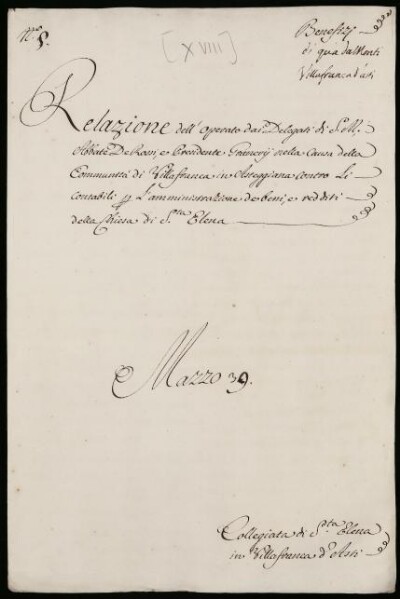 N.º 8.
[XVIII]
Benefizj
di qua da Monti
Villafranca d'asti
Relazione dell' operato dai Delegati di S. M.
Abbate De Rossi, e Presidente Graneri nella Causa della
Communità di Villafranca in Asteggiana contro Li
Contabili per L'amministrazione de beni, e redditi
della Chiesa di S.ta Elena
Mazzo 39.
Collegiata di S.ta Elena
in Villafranca d'Asti